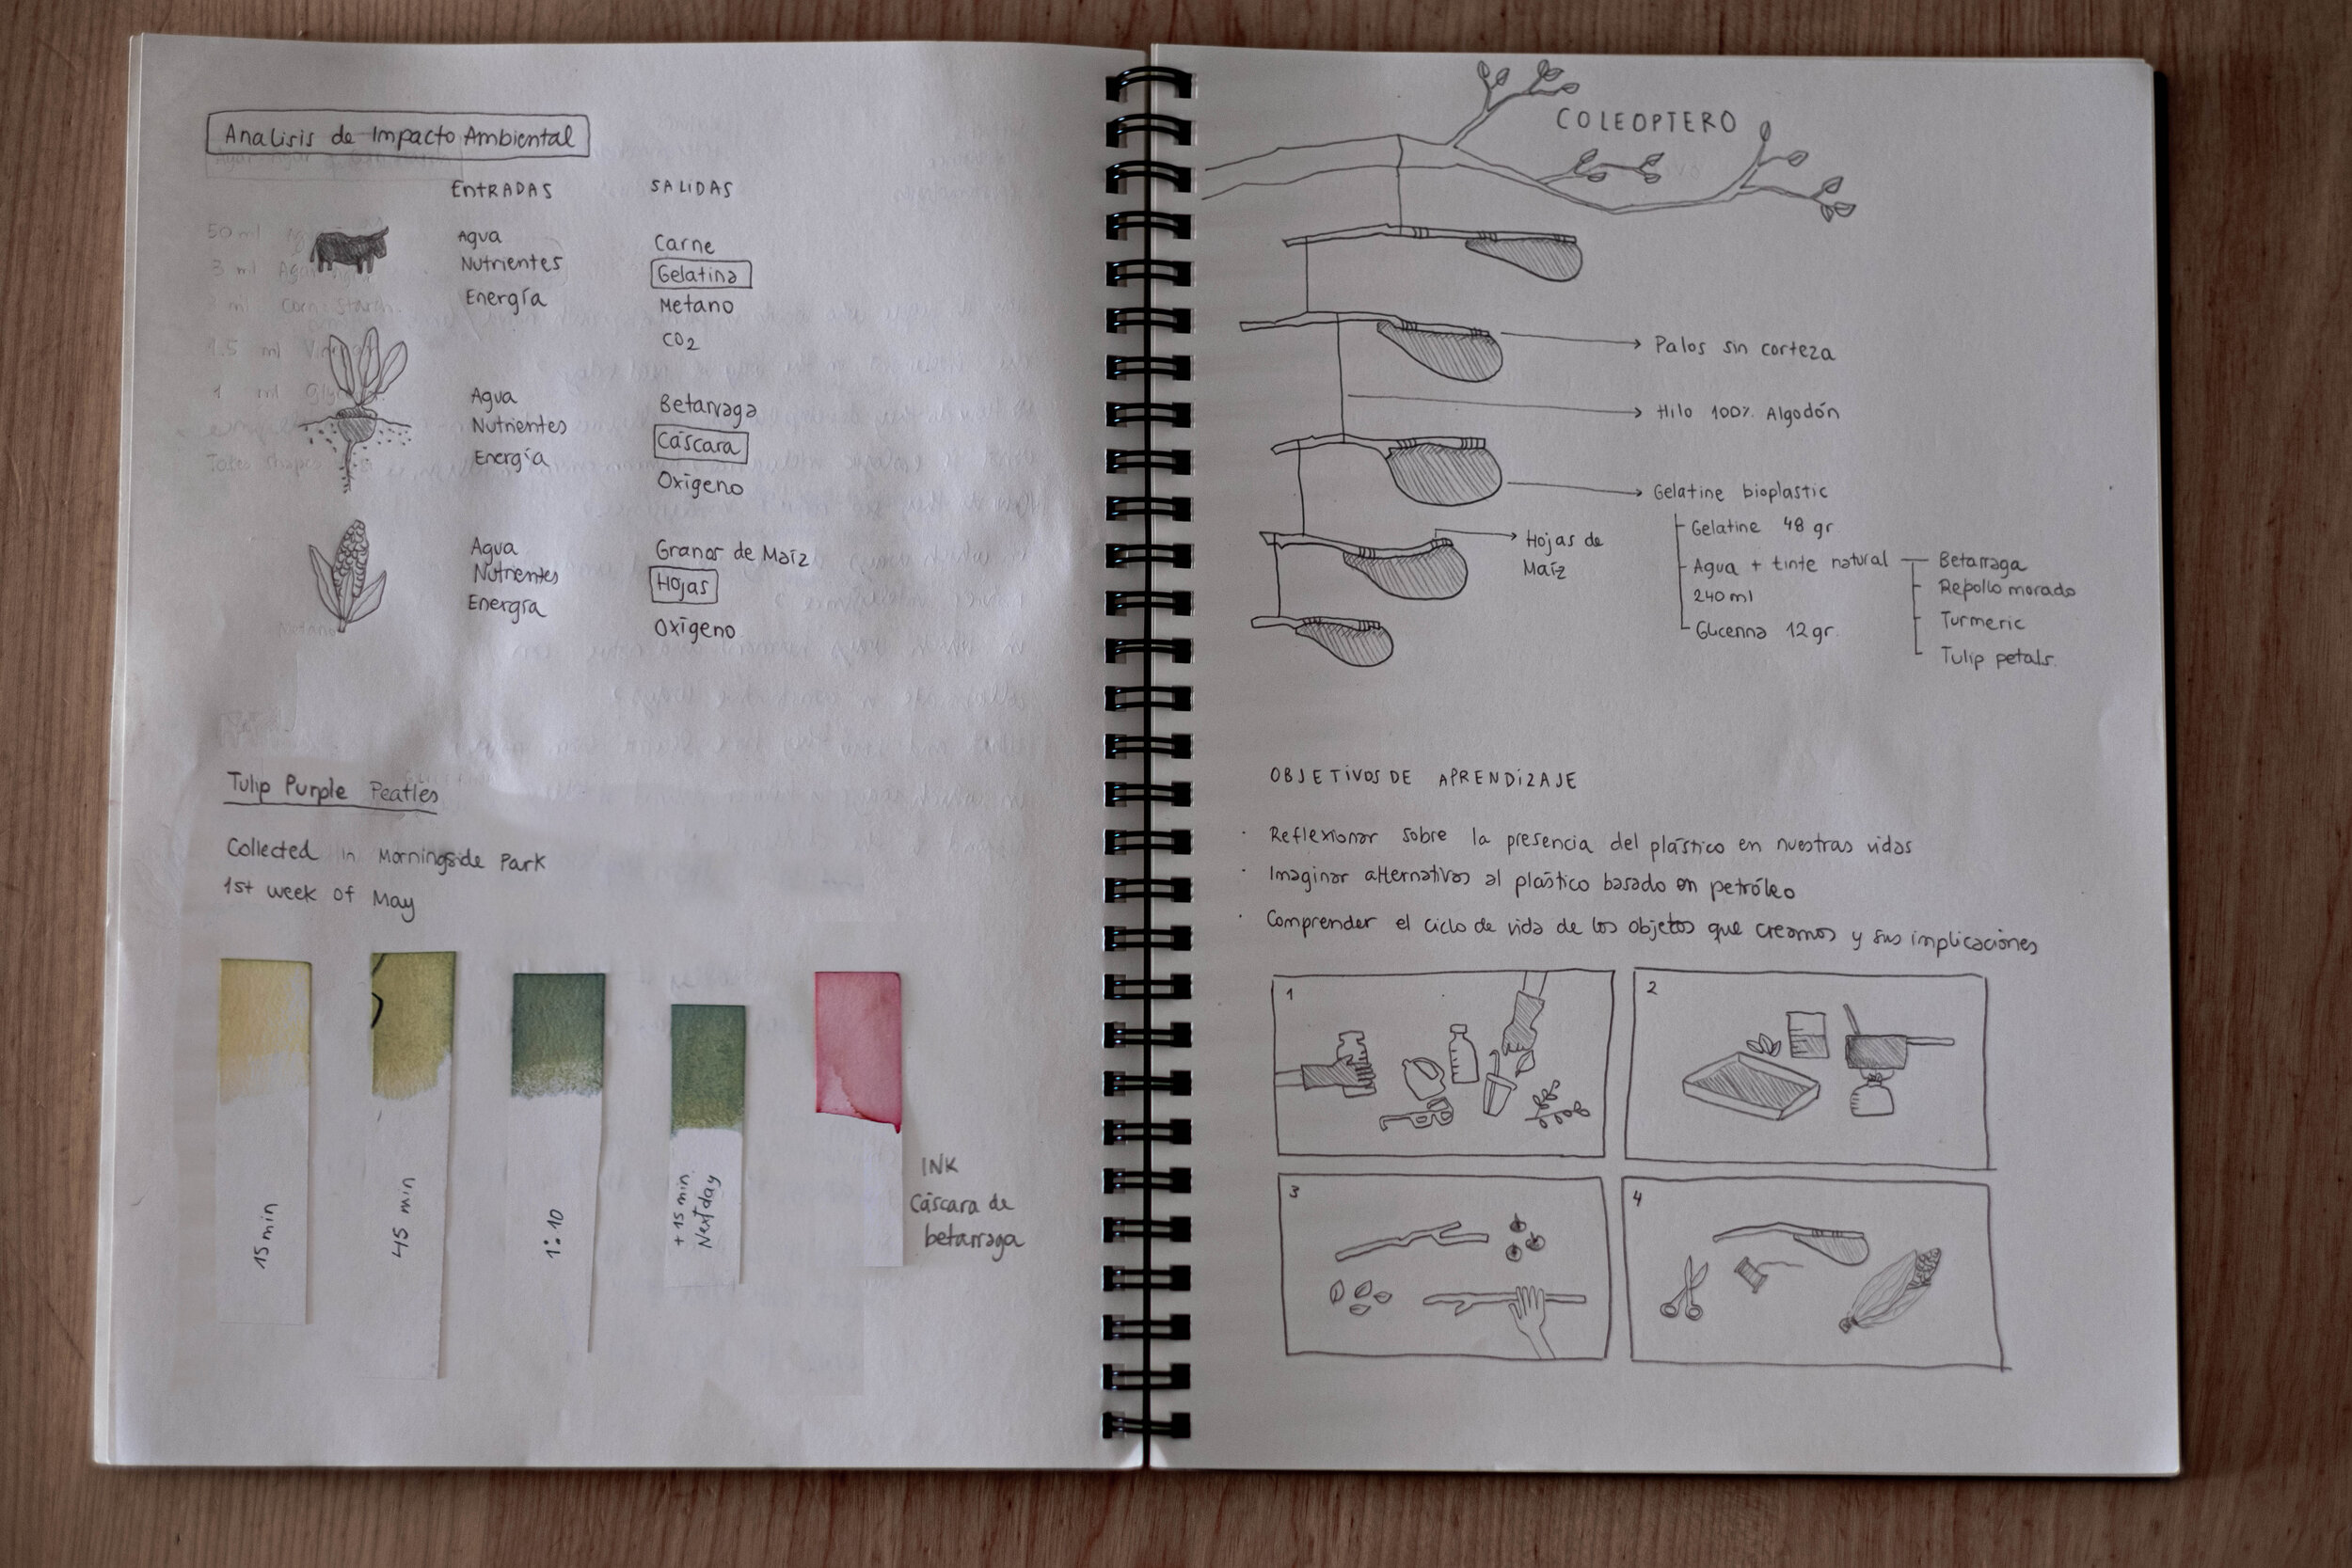 Analisis de Impacto Ambiental
ENTRADAS SALIDAS
Agua Carne
Nutrientes Gelatina
Energía Metano
CO2
Agua Betarraga
Nutrientes Cáscara
Energía Oxígeno
Agua Granos de Maíz
Nutrientes Hojas
Energía Oxígeno
Tulip Purple Peatles
Collected in Morningside Park
1st week of May
15 min
45 min
1:10
+ 15 min
Next day
INK
Cáscara de
betarraga
COLEOPTERO
Palos sin corteza
Hilo 100% Algodón
Gelatine bioplastic
Gelatine 48 gr
Hojas de
Maíz
Agua + tinte natural
240 ml
Glicerina 12 gr.
Betarraga
Repollo morado
Turmeric
Tulip petals.
OBJETIVOS DE APRENDIZAJE
· Reflexionar sobre la presencia del plástico en nuestras vidas
· Imaginar alternativas al plástico basado en petróleo
· Comprender el ciclo de vida de los objetos que creamos y sus implicaciones
1
2
3
4